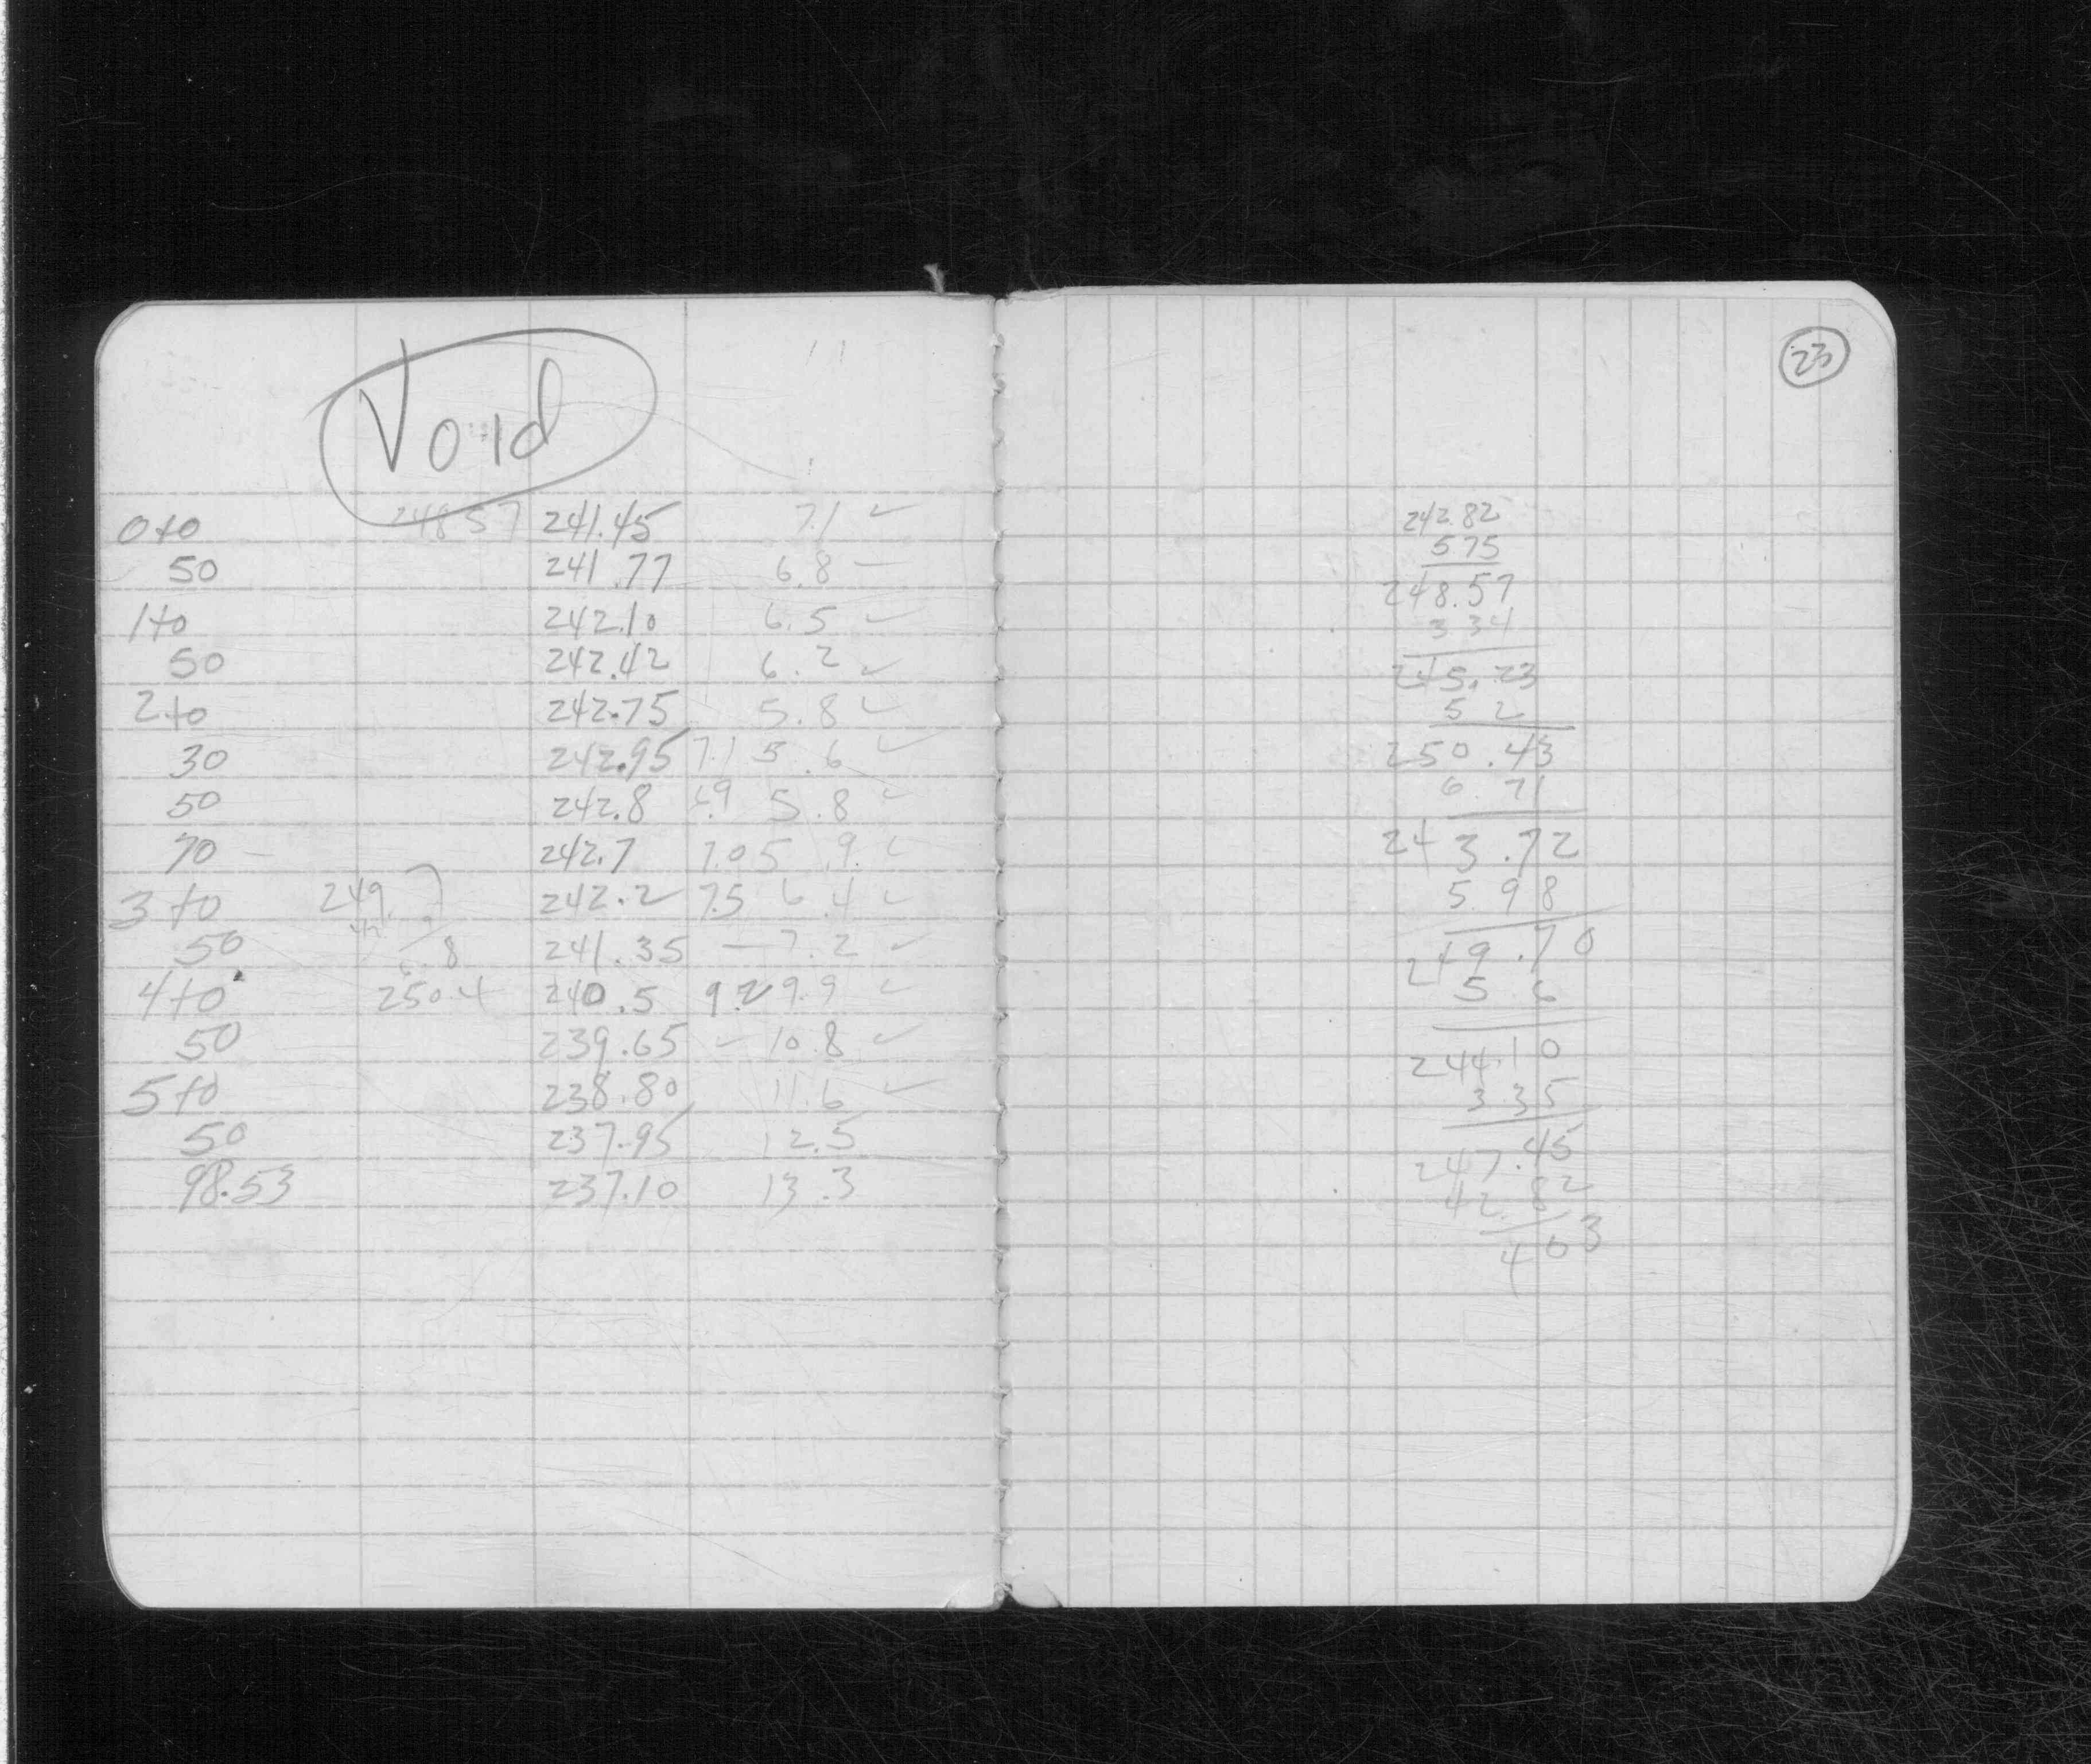 Void
0+0 248.57 241.45 7.1 ✓
50 241.77 6.8 –
1+0 242.10 6.5 ✓
50 242.42 6.2 ✓
2+0 242.75 5.8 ✓
30 242.95 7.1 5.6 ✓
50 242.8 6.9 5.8 ✓
70 – 242.7 7.0 5.9 ✓
3+0 249. 242.2 7.5 6.4 ✓
50 8 241.35 – 7.2 ✓
4+0 250.4 240.5 9.9 ✓
50 239.65 – 10.8 ✓
5+0 238.80 11.6 ✓
50 237.95 12.5
98.53 237.10 13.3
23
242.82
575
248.57
3 34
245.23
5 2
250.43
6.71
243.72
5.98
249.70
5 6
244.10
3.35
247.45
42.82
4 63